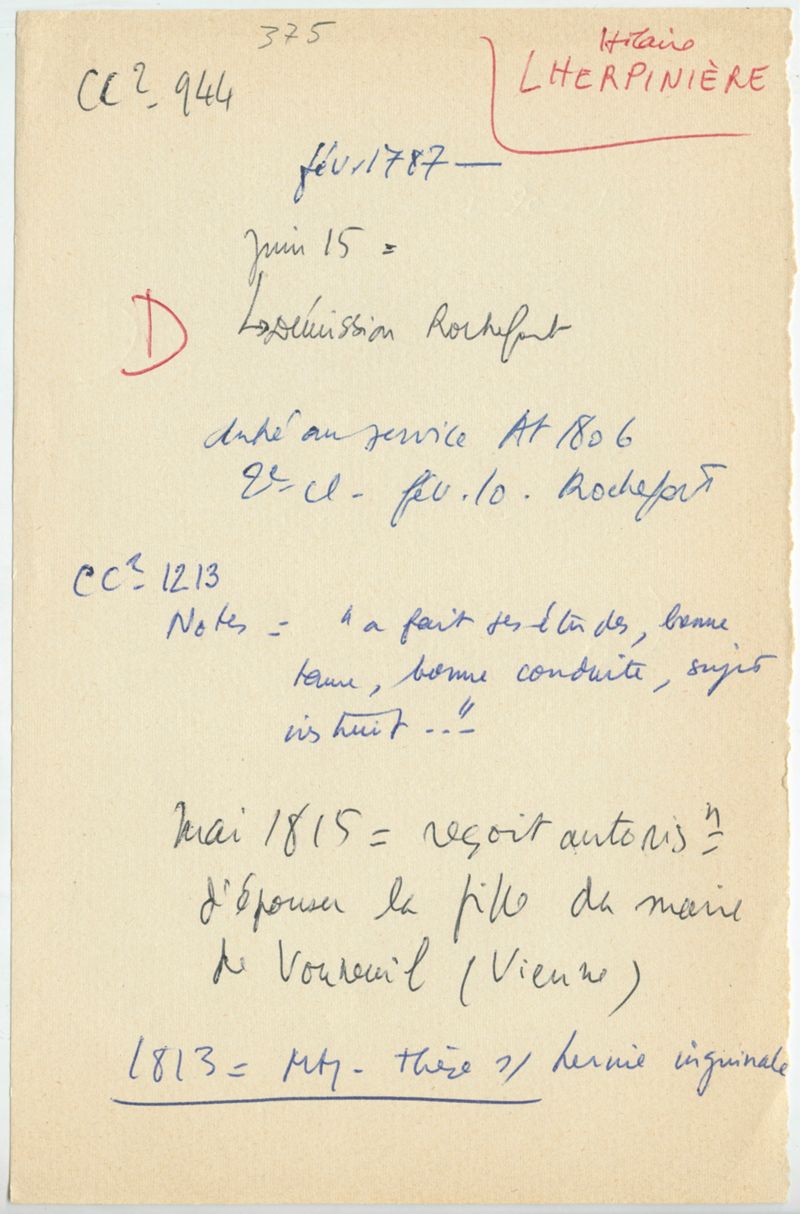 375
Hilaire
LHERPINIÈRE
CC² 944
fév. 1787 —
Juin 15 =
D
↳ Démission Rochefort
entré au service At 1806
2e cl - fév. 10. Rochefort
CC² 1213
Notes = "a fait ses études, bonne
tenue, bonne conduite, sujet
instruit ..."
Mai 1815 = reçoit autorisn
d'épouser la fille du maire
de Vouneuil (Vienne)
1813 = Mtp - thèse s/ hernie inguinale